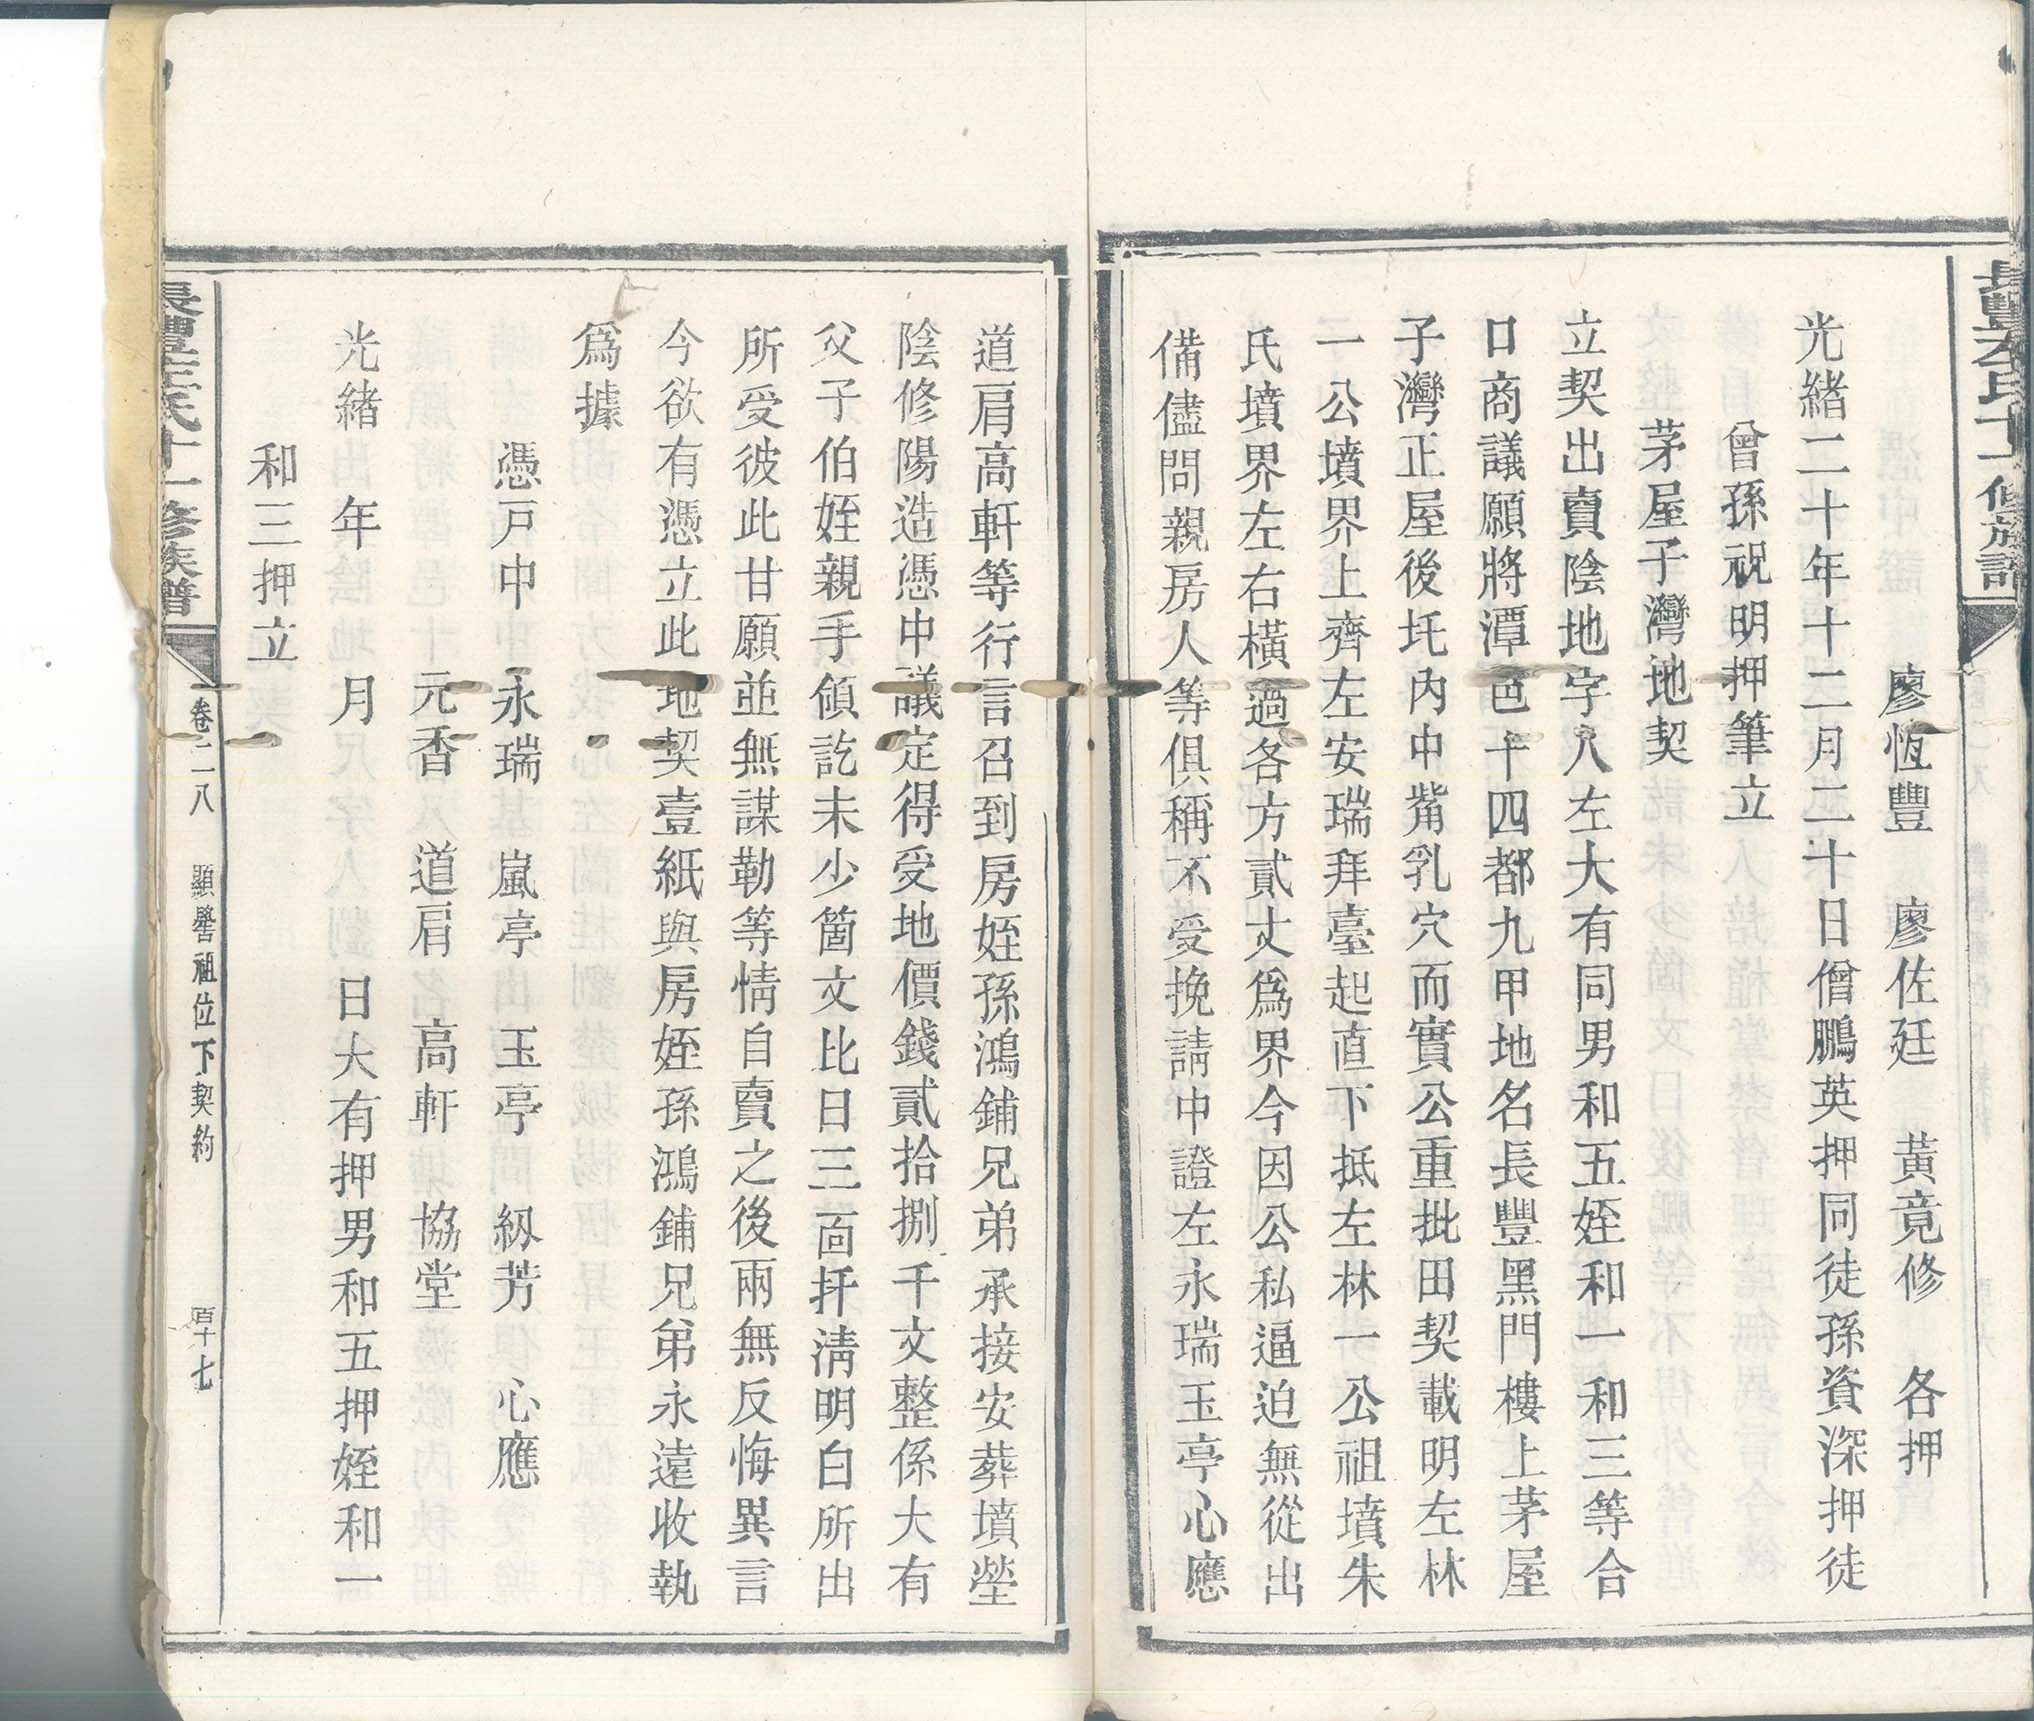 長豐左氏十一修族譜
廖恆豐　廖佐廷　黃竟修　各押
光緒二十年十二月二十日僧鵬英押同徒孫資深押徒
曾孫祝明押筆立
茅屋子灣地契
立契出賣陰地字人左大有同男和五姪和一和三等合
口商議願將潭邑十四都九甲地名長豐黑門樓上茅屋
子灣正屋後圫內中觜乳穴而實公重批田契載明左林
一公墳界上齊左安瑞拜臺起直下抵左林一公祖墳朱
氏墳界左右橫過各方貳丈為界今因公私逼迫無從出
備儘問親房人等俱稱不受挽請中證左永瑞玉亭心應
道肩高軒等行言召到房姪孫鴻鋪兄弟承接安葬墳塋
陰修陽造憑中議定得受地價錢貳拾捌千文整係大有
父子伯姪親手領訖未少箇文比日三面扦清明白所出
所受彼此甘願並無謀勒等情自賣之後兩無反悔異言
今欲有憑立此地契壹紙與房姪孫鴻鋪兄弟永遠收執
為據
憑戶中　永瑞　嵐亭　玉亭　紉芳　心應
元香　道肩　高軒　協堂
光緒　年　月　日大有押男和五押姪和一
和三押立
長豐左氏十一修族譜
卷二八　顯譽祖位下契約　百十七